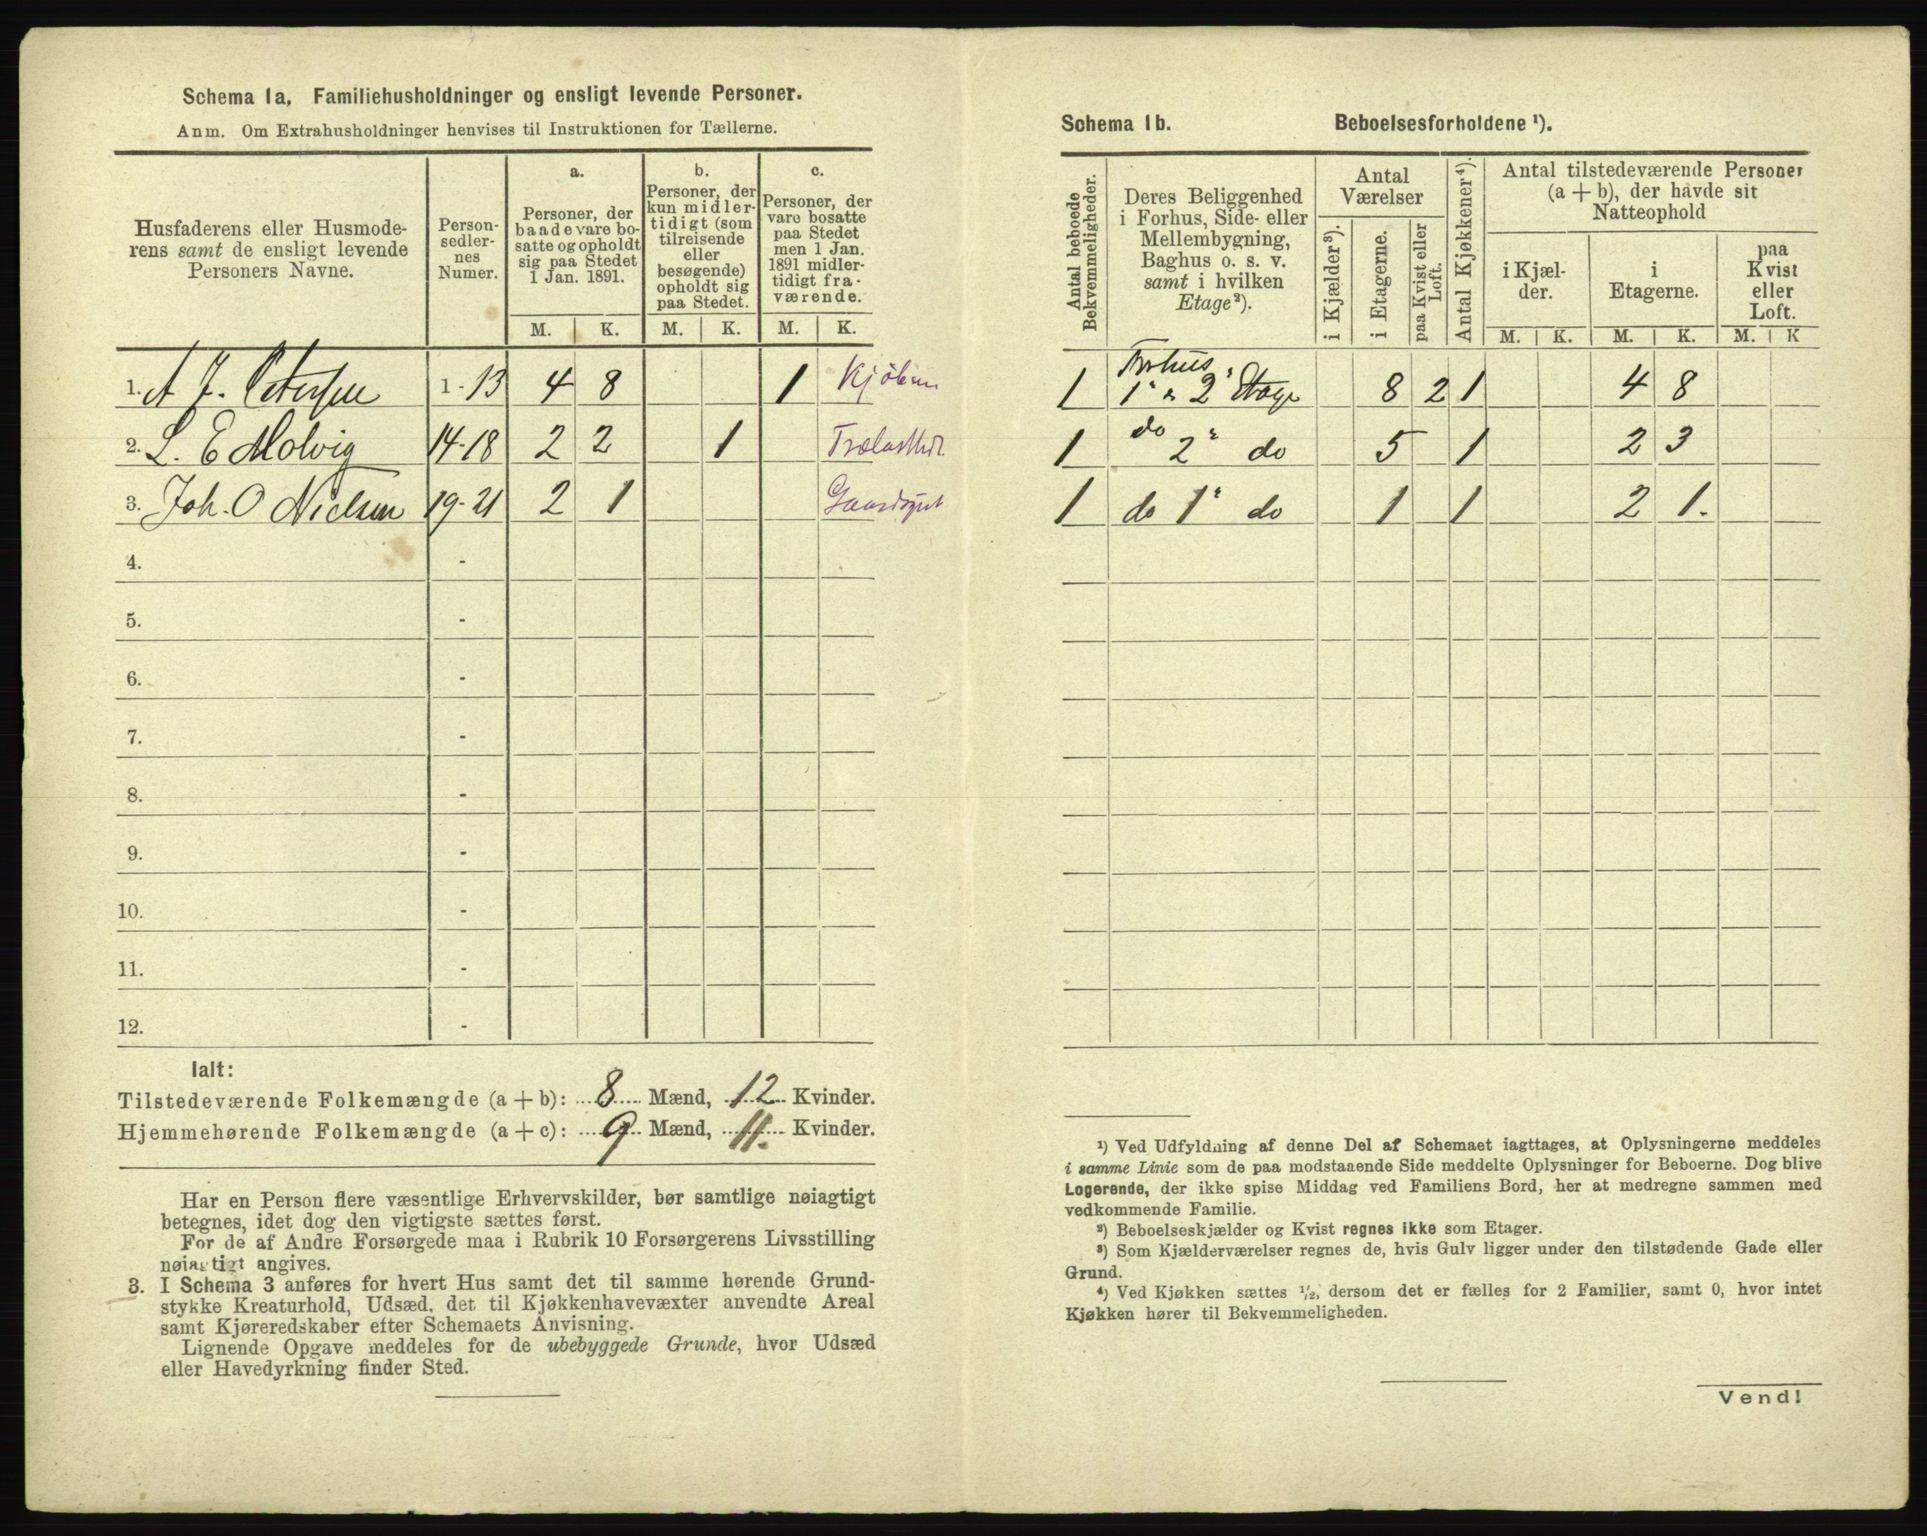 Schema 1a. Familiehusholdninger og ensligt levende Personer.
Anm. Om Extrahusholdninger henvises til Instruktionen for Tællerne.
Husfaderens eller Husmoderens samt de ensligt levende Personers Navne.
Personsedlernes Numer.
a. Personer, der baade vare bosatte og opholdt sig paa Stedet 1 Jan. 1891.
b. Personer, der kun midlertidigt (som tilreisende eller besøgende) opholdt sig paa Stedet.
c. Personer, der vare bosatte paa Stedet men 1 Jan. 1891 midlertidigt fraværende.
M. K. M. K. M. K.
1. A J. Petersen 1-13 4 8 1 Kjøbm
2. L. E Molvig 14-18 2 2 1 Trælasthdl.
3. Joh. O Nielsen 19-21 2 1 Gaardsgut
4. -
5. -
6. -
7. -
8. -
9. -
10. -
11. -
12. -
Ialt:
Tilstedeværende Folkemængde (a+b): 8 Mænd, 12 Kvinder.
Hjemmehørende Folkemængde (a+c): 9 Mænd, 11. Kvinder.
Har en Person flere væsentlige Erhvervskilder, bør samtlige nøiagtigt
betegnes, idet dog den vigtigste sættes først.
For de af Andre Forsørgede maa i Rubrik 10 Forsørgerens Livsstilling
nøiagtigt angives.
3. I Schema 3 anføres for hvert Hus samt det til samme hørende Grund-
stykke Kreaturhold, Udsæd, det til Kjøkkenhavevæxter anvendte Areal
samt Kjøreredskaber efter Schemaets Anvisning.
Lignende Opgave meddeles for de ubebyggede Grunde, hvor Udsæd
eller Havedyrkning finder Sted.
Schema 1b. Beboelsesforholdene ¹).
Antal beboede Bekvemmeligheder.
Deres Beliggenhed i Forhus, Side- eller Mellembygning, Baghus o. s. v. samt i hvilken Etage²).
Antal Værelser
i Kjælder³).
i Etagerne.
paa Kvist eller Loft.
Antal Kjøkkener⁴).
Antal tilstedeværende Personer (a+b), der havde sit Natteophold
i Kjælder.
i Etagerne.
paa Kvist eller Loft.
M. K. M. K. M. K
1 Forhus 1' & 2' Etage 8 2 1 4 8
1 do 2' do 5 1 2 3
1 do 1' do 1 1 2 1.
¹) Ved Udfyldning af denne Del af Schemaet iagttages, at Oplysningerne meddeles
i samme Linie som de paa modstaaende Side meddelte Oplysninger for Beboerne. Dog blive
Logerende, der ikke spise Middag ved Familiens Bord, her at medregne sammen med
vedkommende Familie.
²) Beboelseskjælder og Kvist regnes ikke som Etager.
³) Som Kjælderværelser regnes de, hvis Gulv ligger under den tilstødende Gade eller
Grund.
⁴) Ved Kjøkken sættes ½, dersom det er fælles for 2 Familier, samt 0, hvor intet
Kjøkken hører til Bekvemmeligheden.
Vend!